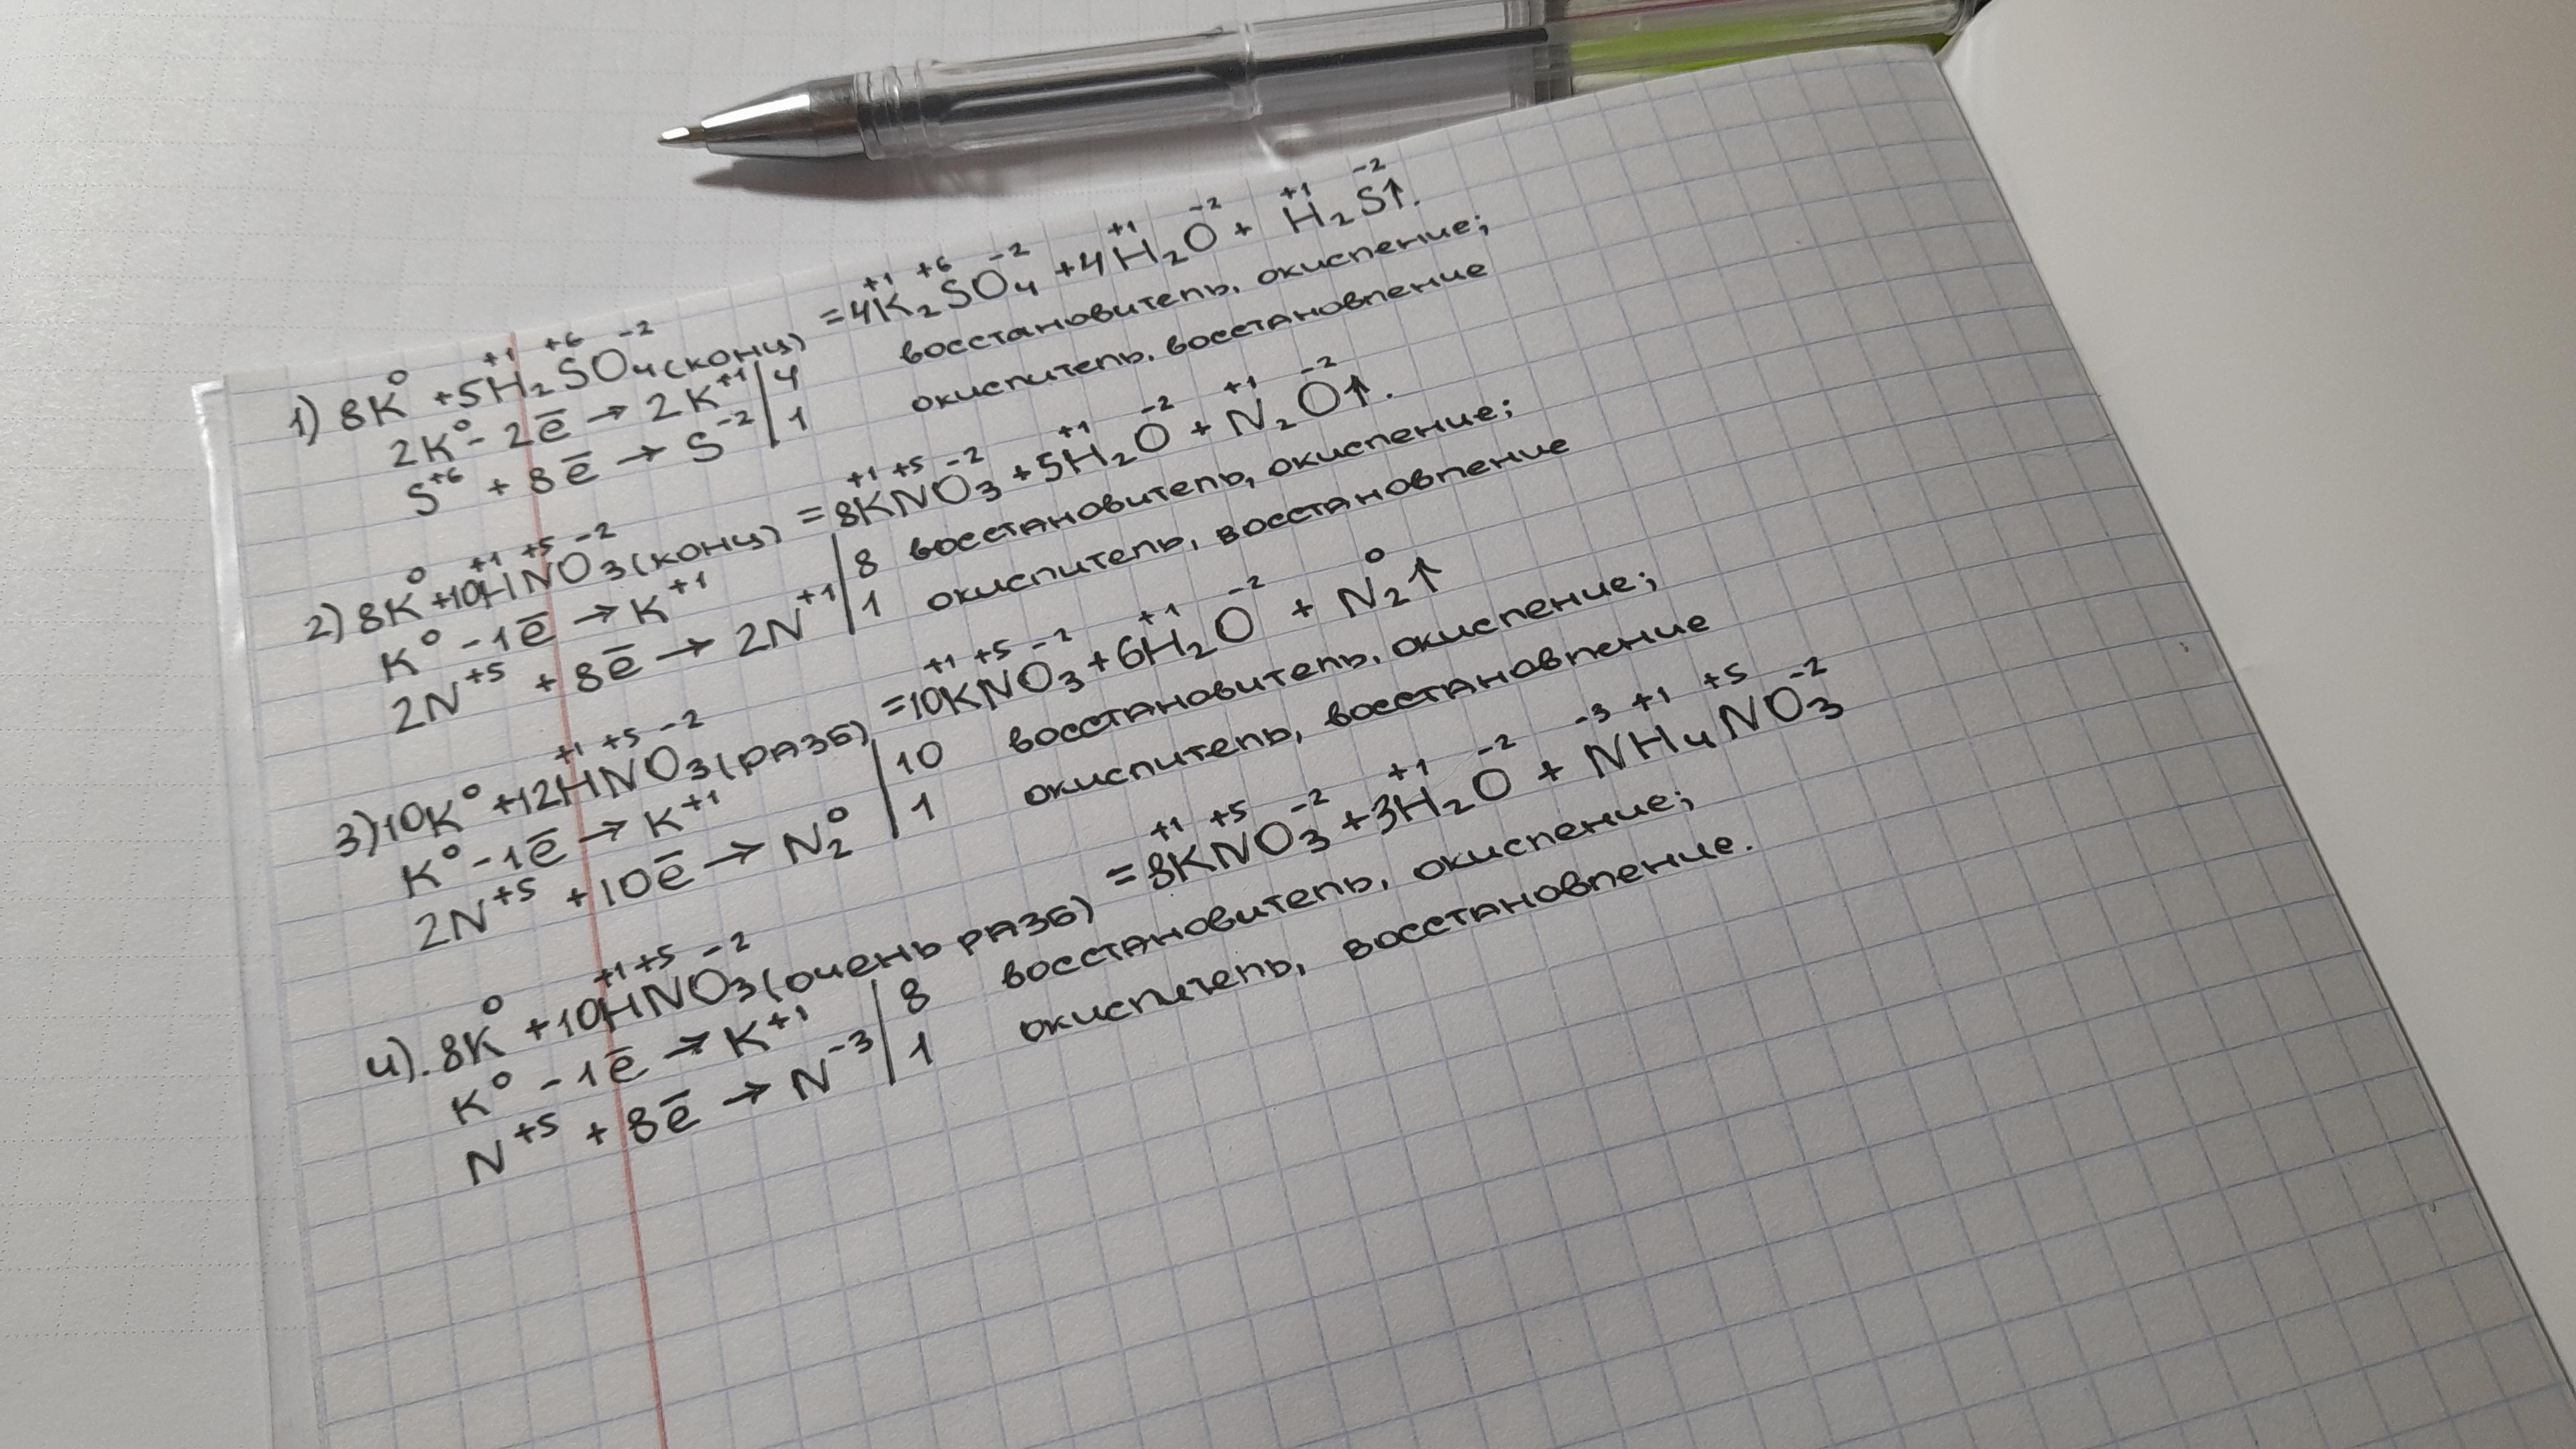 1) 8K⁰ + 5H₂⁺¹S⁺⁶O₄⁻²(конц) = 4K₂⁺¹S⁺⁶O₄⁻² + 4H₂⁺¹O⁻² + H₂⁺¹S⁻²↑.
2K⁰ - 2ē → 2K⁺¹ | 4 восстановитель, окисление;
S⁺⁶ + 8ē → S⁻² | 1 окислитель, восстановление
2) 8K⁰ + 10H⁺¹N⁺⁵O₃⁻²(конц) = 8K⁺¹N⁺⁵O₃⁻² + 5H₂⁺¹O⁻² + N₂⁺¹O⁻²↑.
K⁰ - 1ē → K⁺¹ | 8 восстановитель, окисление;
2N⁺⁵ + 8ē → 2N⁺¹ | 1 окислитель, восстановление
3) 10K⁰ + 12H⁺¹N⁺⁵O₃⁻²(разб) = 10K⁺¹N⁺⁵O₃⁻² + 6H₂⁺¹O⁻² + N₂⁰↑
K⁰ - 1ē → K⁺¹ | 10 восстановитель, окисление;
2N⁺⁵ + 10ē → N₂⁰ | 1 окислитель, восстановление
4). 8K⁰ + 10H⁺¹N⁺⁵O₃⁻²(очень разб) = 8K⁺¹N⁺⁵O₃⁻² + 3H₂⁺¹O⁻² + N⁻³H₄⁺¹N⁺⁵O₃⁻²
K⁰ - 1ē → K⁺¹ | 8 восстановитель, окисление;
N⁺⁵ + 8ē → N⁻³ | 1 окислитель, восстановление.